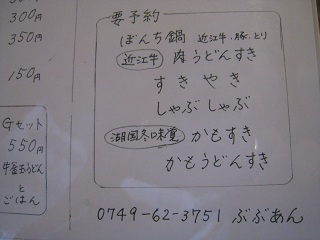 300円
350円
150円
Gセット
550円
牛釜玉うどん
と
ごはん
要予約
ぼんち鍋 近江牛、豚、とり
近江牛 肉うどんすき
すきやき
しゃぶしゃぶ
湖国冬味覚 かもすき
かもうどんすき
0749-62-3751 ぶぶあん